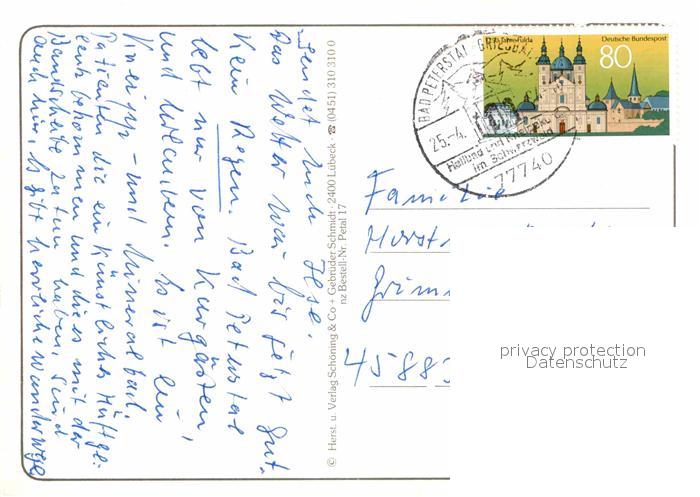 sendet Euch Ilse.
Das Wetter war bis jetzt gut.
Kein Regen. Bad Peterstal
lebt nur von Kurgästen,
und Urlaubern. Es ist ein
Kneipp - und Mineralbad.
Patienten die ein künstliches Hüftge-
lenk bekommen und die es mit der
Bandscheibe zu tun haben, sind
auch hier. Es gibt herrliche Wanderwege
© Herst. u. Verlag Schöning & Co + Gebrüder Schmidt · 2400 Lübeck · ☎ (0451) 310 310 0
nz Bestell-Nr. Petal 17
BAD PETERSTAL-GRIESBACH
25.-4.
Heilbad und Kneippkurort
im Schwarzwald
77740
Fulda
Deutsche Bundespost
80
Familie
Horst
Grimm
4588
privacy protection
Datenschutz